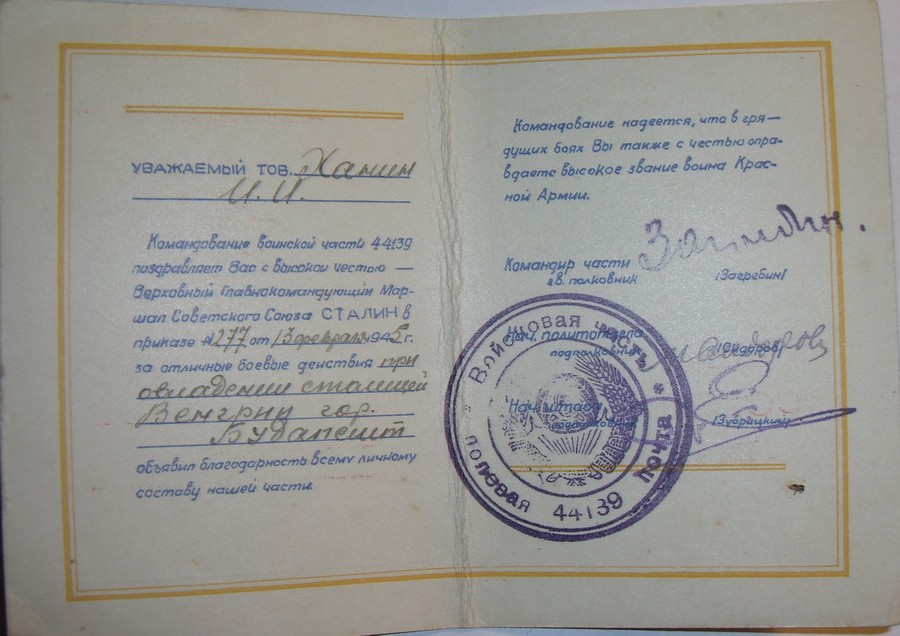 УВАЖАЕМЫЙ ТОВ. Ханин
И.И.
Командование воинской части 44139
поздравляет Вас с высокой честью —
Верховный Главнокомандующий Мар-
шал Советского Союза СТАЛИН в
приказе № 277 от 13 февраля 1945 г.
за отличные боевые действия при
овладении столицей
Венгрии гор.
Будапешт
объявил благодарность всему личному
составу нашей части.
Командование надеется, что в гря-
дущих боях Вы также с честью опра-
вдаете высокое звание воина Крас-
ной Армии.
Командир части
гв. полковник (Загребин)
Нач. политотдела
подполковник
Нач. штаба
подполковник (Зубрицкий)
Войсковая часть
полевая почта
44139